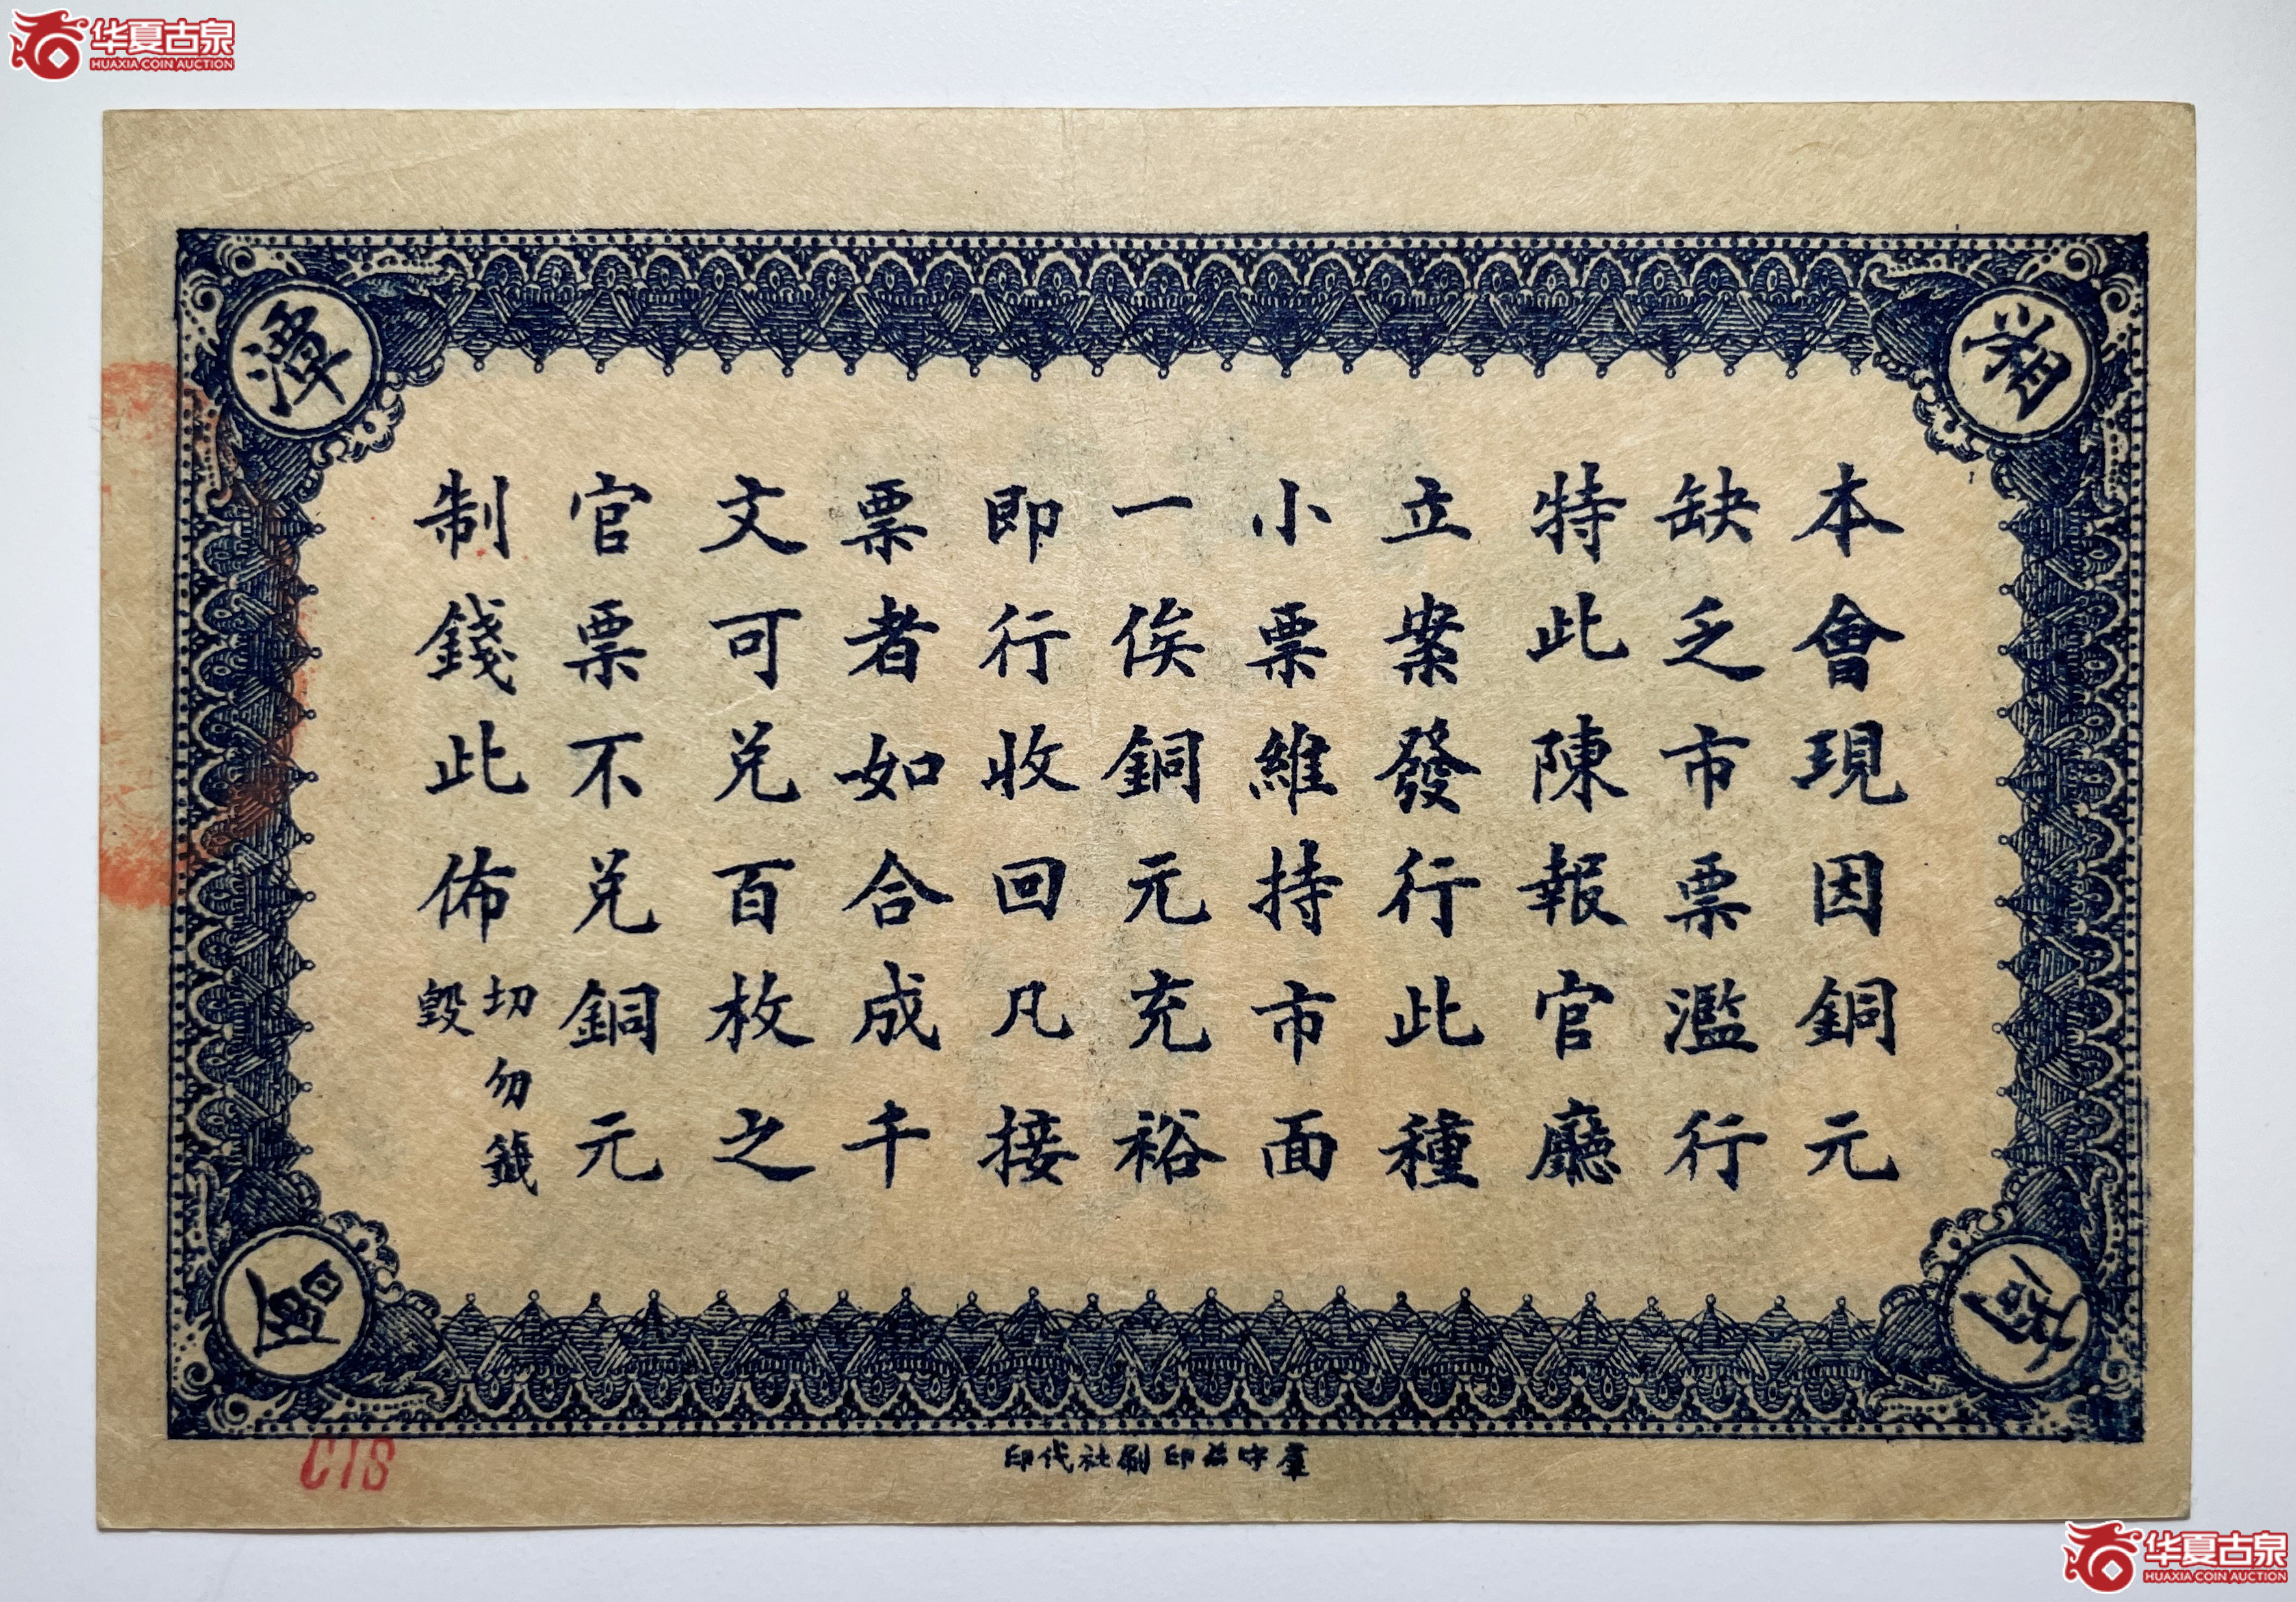 华夏古泉
HUAXIA COIN AUCTION
本會現因銅元
缺乏市票濫行
特此陳報官廳
立案發行此種
小票維持市面
一俟銅元充裕
即行收回凡接
票者如合成千
文可兑百枚之
官票不兑銅元
制錢此佈
切勿籤
毀
印刷社代印
华夏古泉
HUAXIA COIN AUCTION